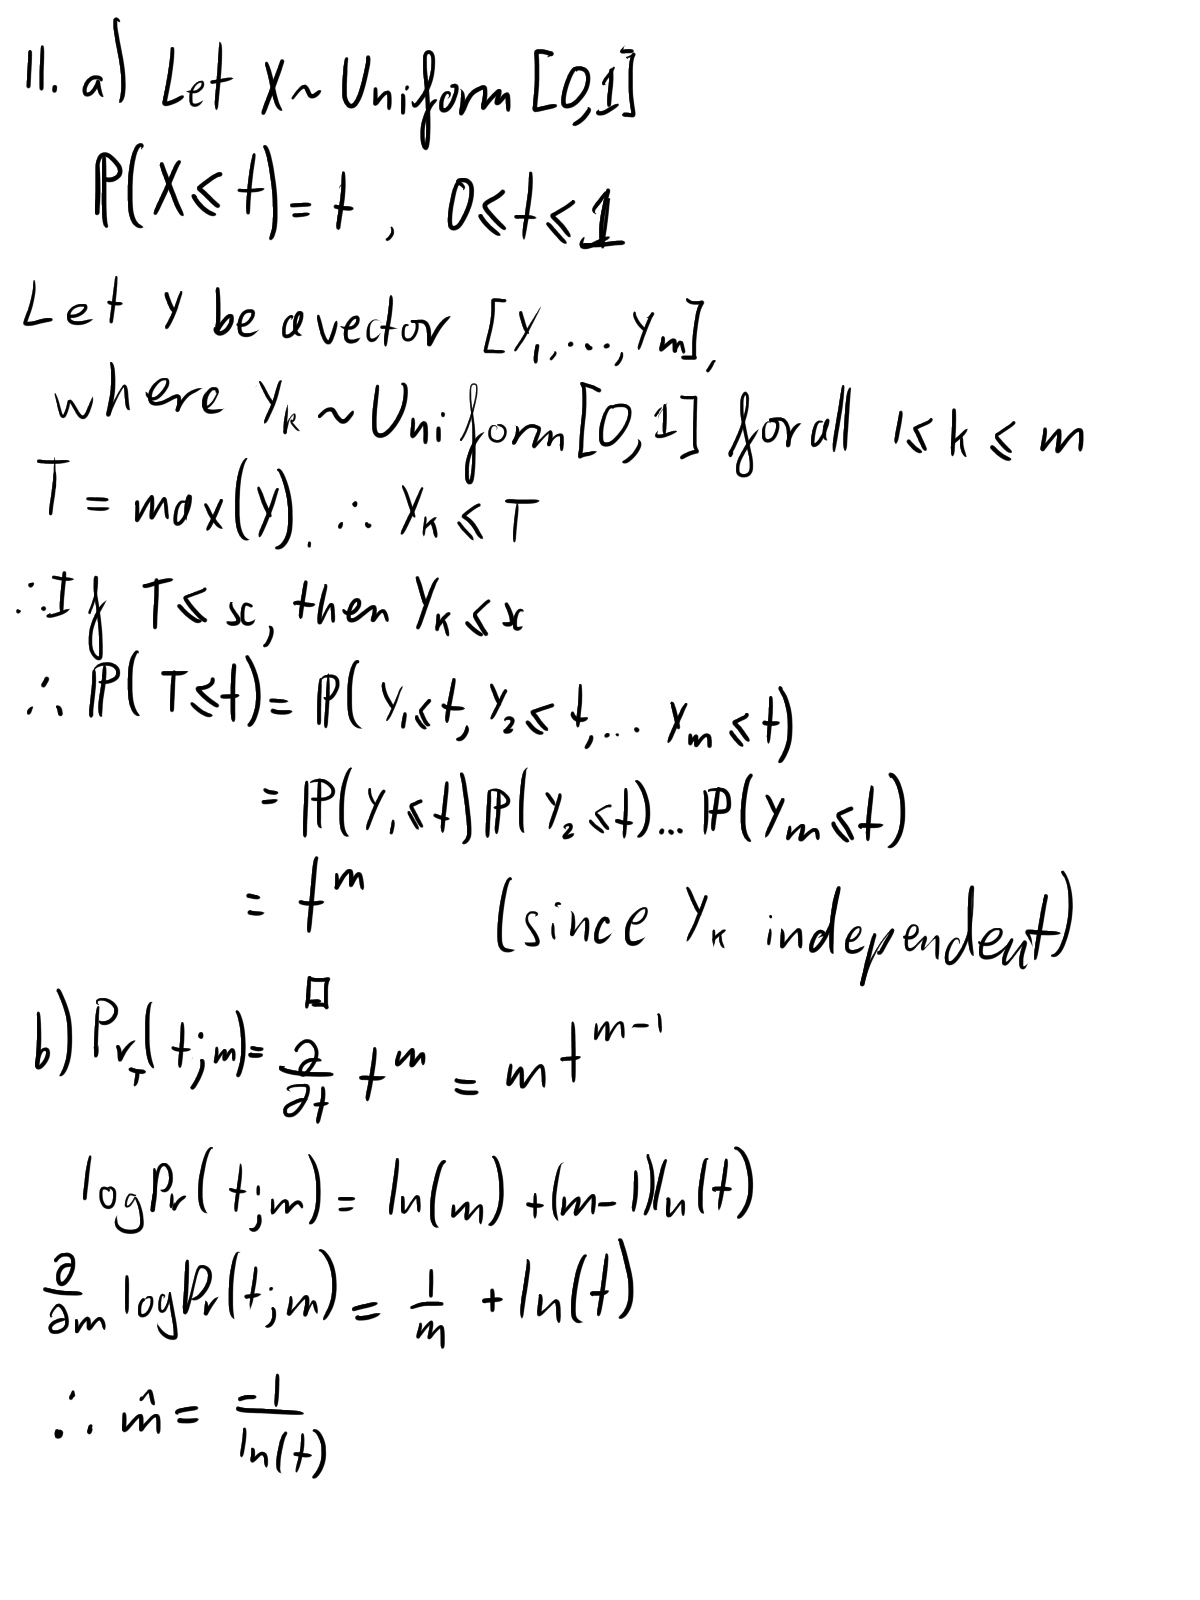 11. a) Let X ~ Uniform [0,1]
ℙ(X ⩽ t) = t , 0 ⩽ t ⩽ 1
Let Y be a vector [Y₁, ..., Yₘ],
where Yₖ ~ Uniform [0,1] for all 1 ⩽ k ⩽ m
T = max(Y). ∴ Yₖ ⩽ T
∴ If T ⩽ x, then Yₖ ⩽ x
∴ ℙ(T ⩽ t) = ℙ(Y₁ ⩽ t, Y₂ ⩽ t, ... Yₘ ⩽ t)
= ℙ(Y₁ ⩽ t) ℙ(Y₂ ⩽ t) ... ℙ(Yₘ ⩽ t)
= tᵐ (since Yₖ independent)
□
b) Pr_T(t;m) = ∂/∂t tᵐ = m tᵐ⁻¹
log Pr(t;m) = ln(m) + (m-1)ln(t)
∂/∂m log Pr(t;m) = 1/m + ln(t)
∴ m̂ = -1/ln(t)